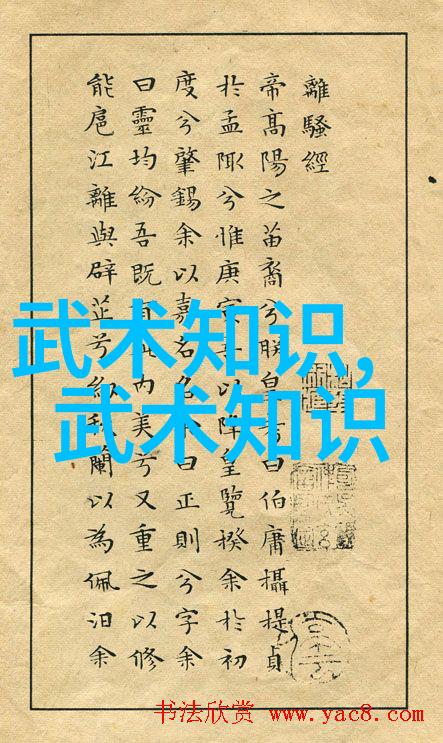 離騷經
帝高陽之苗裔兮朕皇考曰伯庸攝提貞
於孟陬兮惟庚寅吾以降皇覽揆余於初
度兮肇錫余以嘉名名余曰正則兮字余
曰靈均紛吾既有此內美兮又重之以修
能扈江離與辟芷兮紉秋蘭以為佩汨余
武术知识,
武术知识
书法欣赏 www.yac8.com